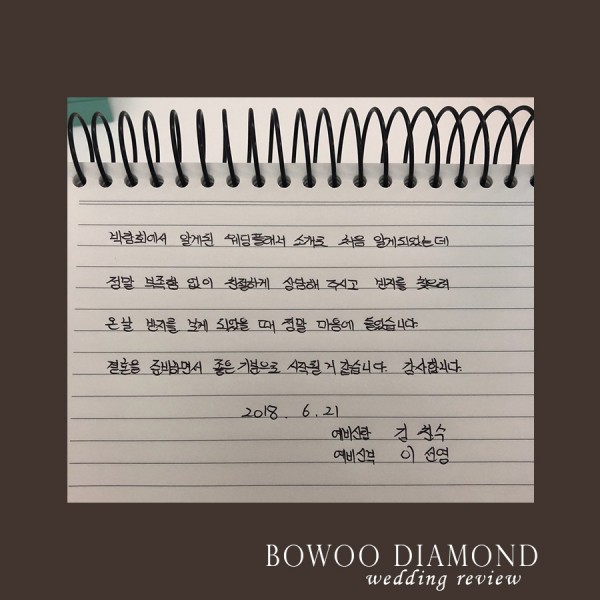 박람회에서 알게된 웨딩플래너 소개로 처음 알게되었는데
정말 부족함 없이 친절하게 상담해 주시고 반지를 찾으러
온날 반지를 보게 되었을 때 정말 마음에 들었습니다.
결혼을 준비하면서 좋은 기분으로 시작될거 같습니다. 감사합니다.
2018. 6. 21
예비신랑 김 철수
예비신부 이 선영
BOWOO DIAMOND
wedding review